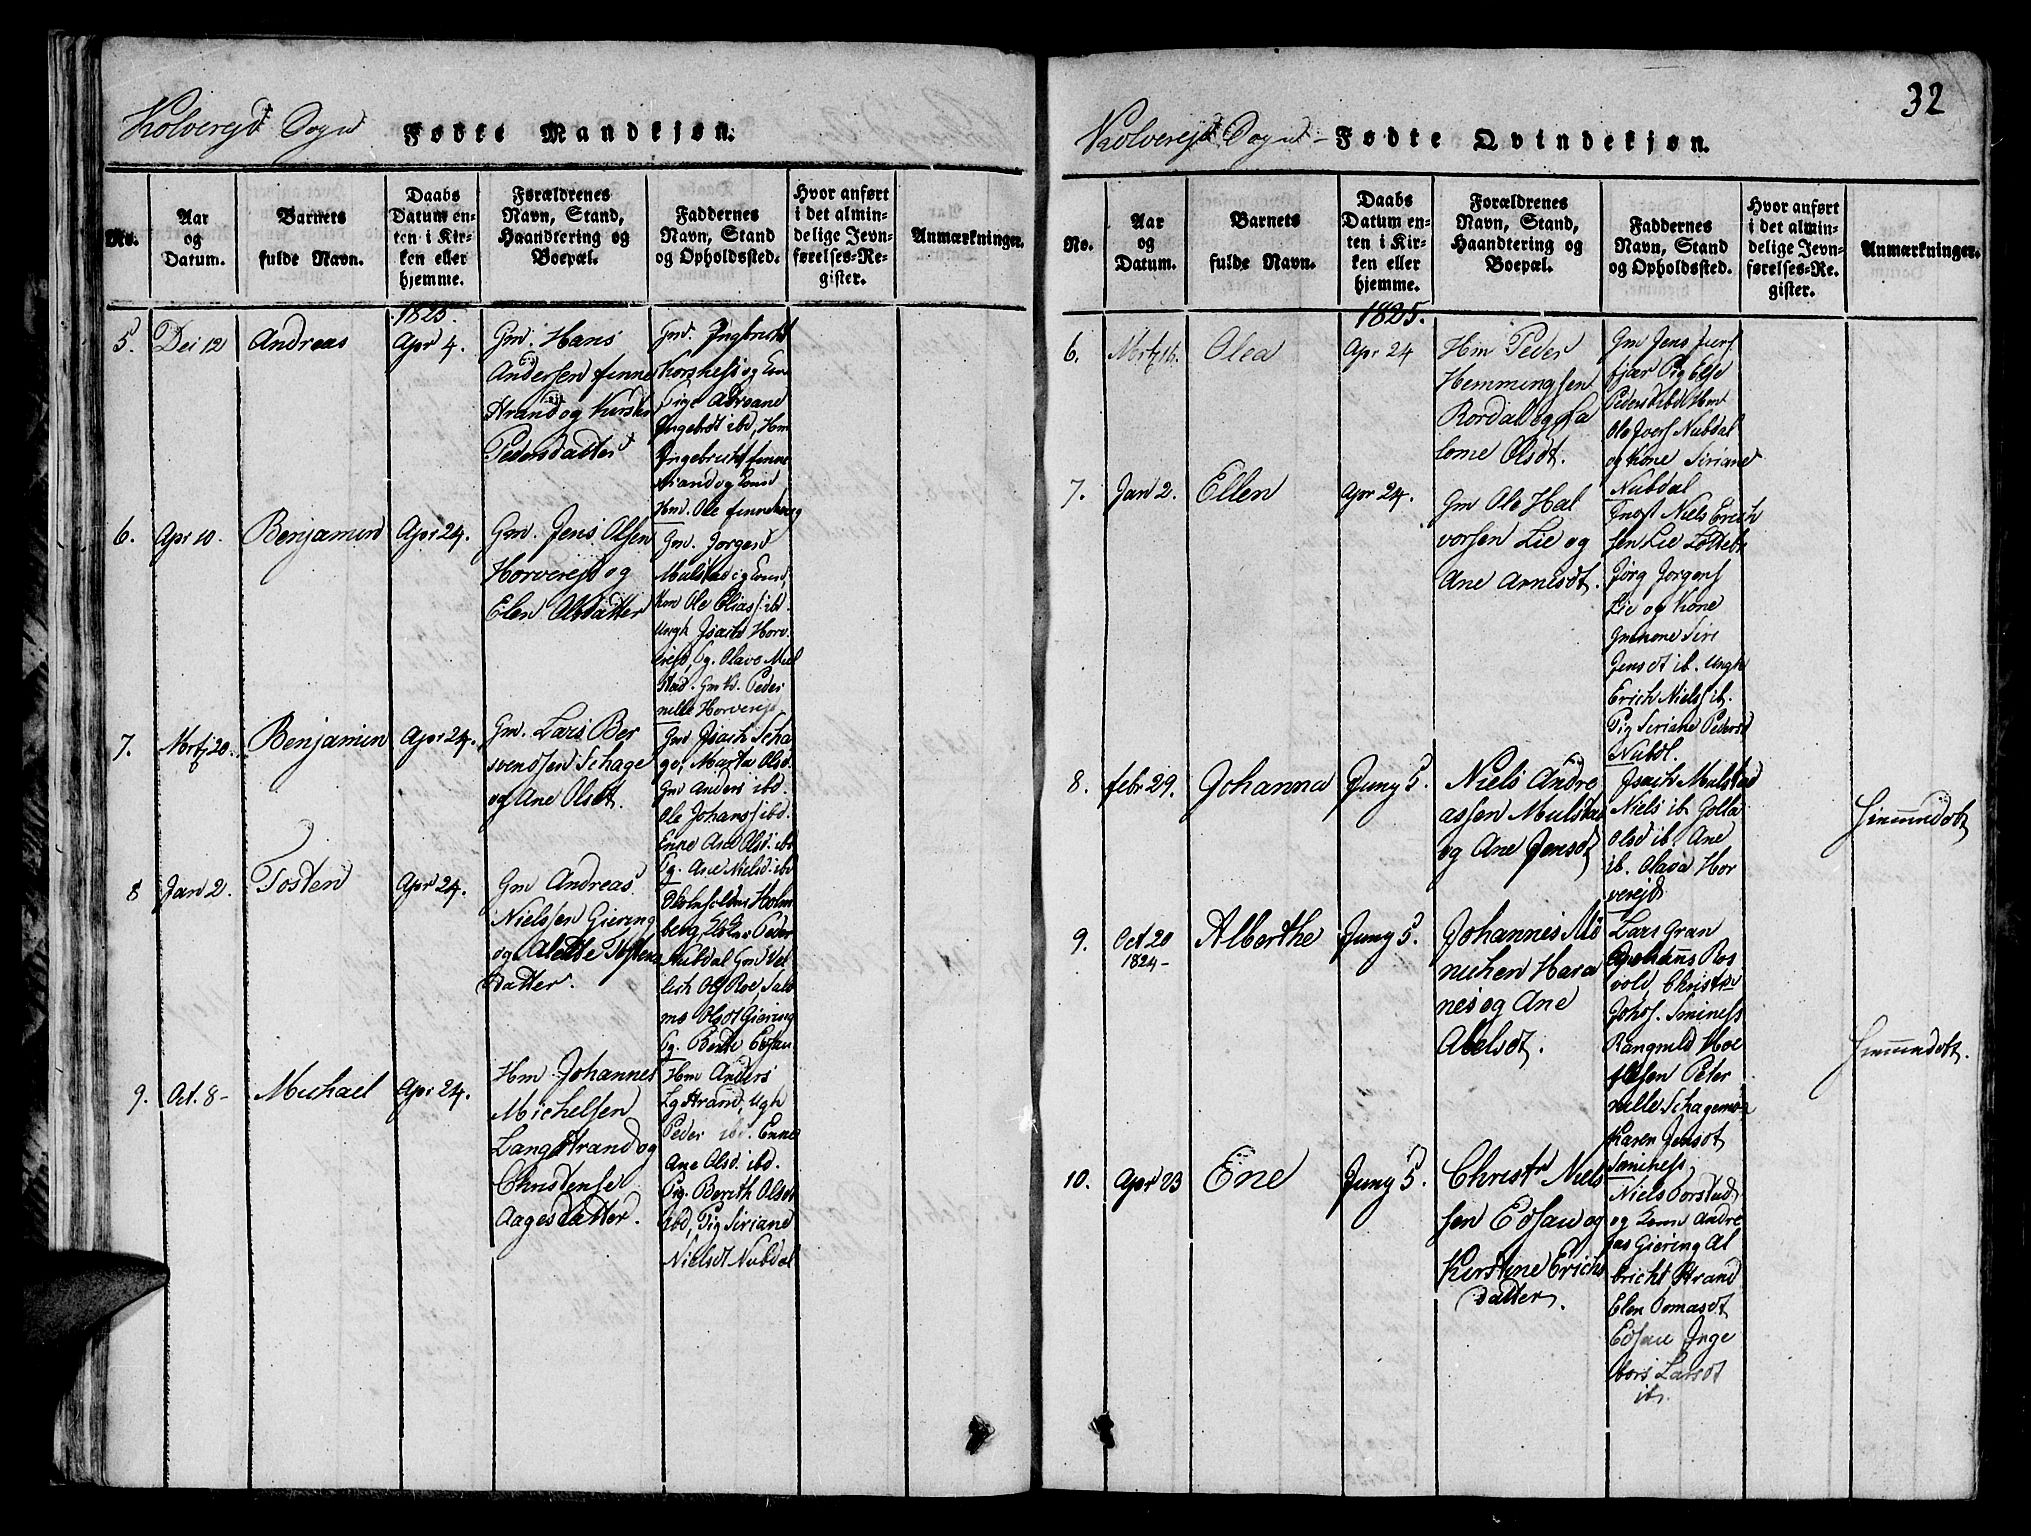 Kolverejd Sogn Fødte Mandkjøn.
No.
Aar
og
Datum.
Barnets
fulde Navn.
Daabs
Datum en-
ten i Kir-
ken eller
hjemme.
Forældrenes
Navn, Stand,
Haandtering og
Boepæl.
Faddernes
Navn, Stand
og Opholdssted.
Hvor anført
i det almin-
delige Jevn-
førelses-Re-
gister.
Anmærkninger.
1825.
5. Dei 12 Andreas Apr 4.
Gm. Hans
Andersen finne
Strand og Kirsten
Pedersdatter
Gm. Ingebricht
Korshess og Kone
Pige Abroane
Ingebrdt ibd, Hm
Ingebricht finne
strand og Kone
Hm. Ole finne
6. Apr 10. Benjamin Apr 24.
Gm. Jens Olsen
Horverejd og
Elen Olsdatter
Gm. Jorgen
Mulstad og Kone
Ole Elias ibd.
Ungk Isach Horv
erejd, Pg. Olavo Mul
stad. Gm K. Peder
nelle Horverejd
7. Mrtz 20. Benjamin Apr 24.
Gm. Lars Ber
svendsen Schage
og Ane Olsdt.
Gm Isach Scha
ge, Marta Olsd.
Gm Anders ibd.
Ole Johans ibd.
Enne Ane Olsd. ibd
Pg. Ane Nielsd. ibd
8 Jan 2. Tosten Apr 24.
Gm Andreas
Nielssen Giering
og Alette Tosten
datter.
Holm
berg Peder
Nubdal Gm
Olsdt Giering
Pg. Berthe Edsau
9. Oct. 8 - Michael Apr 24.
Hm Johannes
Michelsen
Langstrand og
Christense
Aagesdatter.
Hm Anders
Lgstrand, Ugk
Peder ibd. Enne
Ane Olsd. ibd.
Pig. Berith Olsdt
ibd, Pig Siriane
Nielsdt Nubdal
32
Kolverejd Sogn - Fødte Qvindekjøn.
No.
Aar
og
Datum.
Barnets
fulde Navn.
Daabs
Datum en-
ten i Kir-
ken eller
hjemme.
Forældrenes
Navn, Stand,
Haandtering og
Boepæl.
Faddernes
Navn, Stand
og Opholdssted.
Hvor anført
i det almin-
delige Jevn-
førelses-Re-
gister.
Anmærkninger.
1825.
6. Mrtz 16. Olea Apr 24
Hm Peder
Hemmingsen
Rordal og Sa
lome Olsdt.
Gm Jens
fjær Pig Else
Pedersd ibd Hm
Ole Ivers Nubdal
og Kone Siriane
Nubdal
7. Jan 2. Ellen Apr 24.
Gm Ole Hal
vorsen Lie og
Ane Arnesdt.
Niels Erich
sen Lie
Jörg Jorgens
Lie og Kone
Siri
Jensdt ib. Ungk
Erich Niels ib.
Pig Siriane Pedersd
Nubdl.
8. febr 29. Johanna Juny 5.
Niels Andre
assen Mulstad
og Ane Jensdt
Isach Mulstad
Niels ib. Golla
Olsd ib. Ane
ib. Olava Hor
verejd
Hiemmedöbt
9. Oct 20
1824 -
Alberthe Juny 5.
Johannes Mö
nichen Hara
nes og Ane
Abelsdt.
Lars Gran
Johans Ros
vold, Christne
Johs. Sminess
Rangnild Hoe
flesen Peter
nelle Schagemo
Karen Jensdt
Saniness,
Hiemmedobt.
10. Apr 23 Ene Juny 5.
Christr Niels
sen Edsau og
Kirstine Erichs
datter.
Niels Porstad
og Kone Andre
as Giering Al
bricht Strand
Elen Tomasdt
Edsau Inge
bors Larsdt
ib.